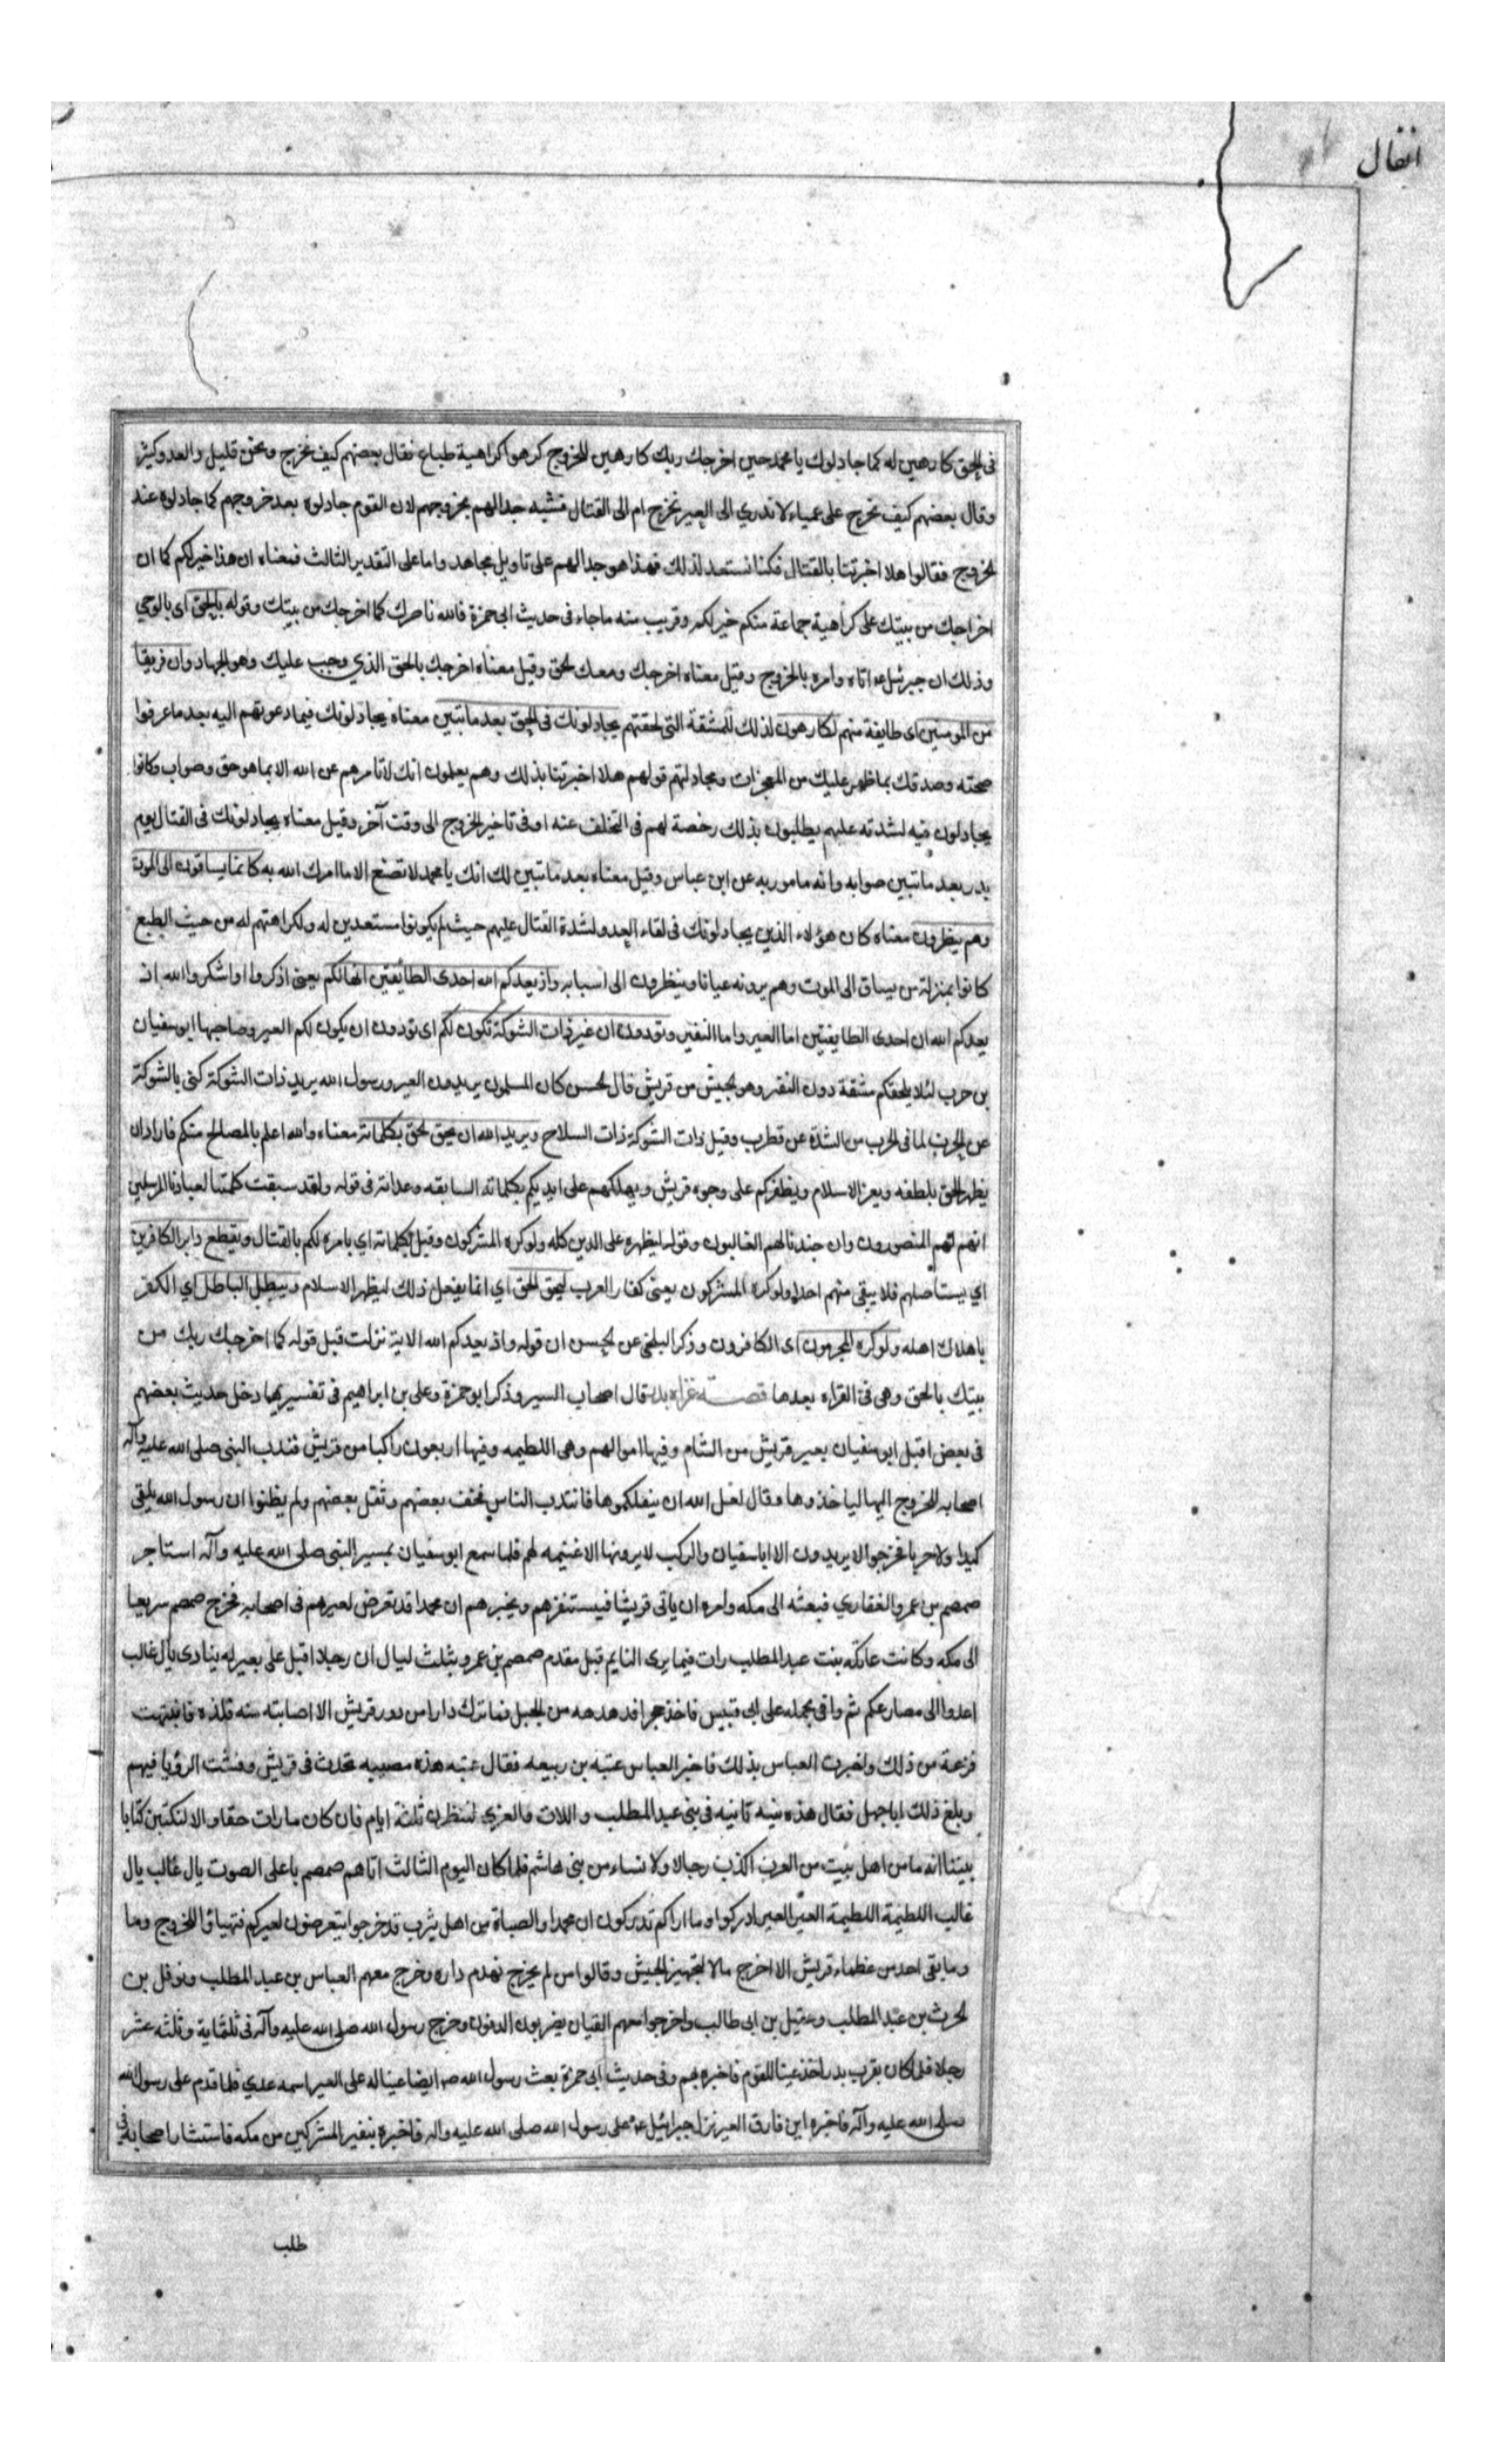 انفال
فى الحق كارهين له كما جادلوك يا محمد حين اخرجك ربك كارهين للخروج كرهوا كراهية طباع فقال بعضهم كيف نخرج ونحن قليل والعدو كثير
وقال بعضهم كيف نخرج على عمياء لا ندري الى العير نخرج ام الى القتال فشبه جدالهم بخروجهم لان القوم جادلوه بعد خروجهم كما جادلوه عند
لخروج فقالوا هلا اخبرتنا بالقتال فكنا نستعد لذلك فهذا هو جدالهم على تاويل مجاهد واما على التقدير الثالث فمعناه ان هذا خير لكم كما ان
اخراجك من بيتك على كراهية جماعة منكم خير لكم وقريب منه ما جاء فى حديث ابى حمزة فالله ناصرك كما اخرجك من بيتك وقوله بالحق اى بالوحي
وذلك ان جبرئيل عه اتاه وامره بالخروج وقيل معناه اخرجك ومعك لحق وقيل معناه اخرجك بالحق الذي وجب عليك وهو الجهاد وان فريقا
من المومنين اى طايفة منهم لكارهون لذلك للمشقة التى لحقتهم يجادلونك فى الحق بعد ما تبين معناه يجادلونك فيما دعوتهم اليه بعد ما عرفوا
صحته وصدقك بما ظهر عليك من المعجزات ومجادلتهم قولهم هلا اخبرتنا بذلك وهم يعلمون انك لا تامرهم عن الله الا بما هو حق وصواب وكانوا
يجادلون فيه لشدته عليهم يطلبون بذلك رخصة لهم فى التخلف عنه او فى تاخير الخروج الى وقت آخر وقيل معناه يجادلونك فى القتال يوم
بدر بعد ما تبين صوابه وانه مامور به عن ابن عباس وقيل معناه بعد ما تبين لك انك يا محمد لا تصنع الا ما امرك الله به كانما يساقون الى الموت
وهم ينظرون معناه كان هؤلاء الذين يجادلونك فى لقاء العدو لشدة القتال عليهم حيث لم يكونوا مستعدين له ولكراهتهم له من حيث الطبع
كانوا بمنزلة من يساق الى الموت وهم يرونه عيانا وينظرون الى اسبابه واذ يعدكم الله احدى الطائفتين انها لكم يعنى اذكروا او اشكروا الله اذ
يعدكم الله ان احدى الطايفتين اما العير واما النفير وتودون ان غير ذات الشوكة تكون لكم اى تودون ان يكون لكم العير وصاحبها ابوسفيان
بن حرب لئلا يلحقكم مشقة دون النفير وهو لجيش من قريش قال لحسن كان المسلمون يريدون العير ورسول الله يريد ذات الشوكة كنى بالشوكة
عن الحرب لما فى الحرب من الشدة عن قطرب وقيل ذات الشوكة ذات السلاح ويريد الله ان يحق لحق بكلماته معناه والله اعلم بالمصالح منكم فاراد ان
يظهر الحق بلطفه ويعز الاسلام ويظفركم على وجوه قريش ويهلكهم على ايديكم بكلماته السابقه وعداته فى قوله ولقد سبقت كلمتنا لعبادنا المرسلين
انهم لهم المنصورون وان جندنا لهم الغالبون وقوله ليظهره على الدين كله ولو كره المشركون وقيل بكلماته اي بامره لكم بالقتال ويقطع دابر الكافرين
اي يستاصلهم فلا يبقى منهم احدا ولو كره المشركون يعنى كفار العرب ليحق الحق اي انما يفعل ذلك ليظهر الاسلام ويبطل الباطل اي الكفر
باهلاك اهله ولو كره المجرمون اى الكافرون وذكر البلخى عن لحسن ان قوله واذ يعدكم الله الاية نزلت قبل قوله كما اخرجك ربك من
بيتك بالحق وهى فى القراءة بعدها قصــة غزاه بدر قال اصحاب السير وذكر ابو حمزة وعلى بن ابراهيم فى تفسيريهما دخل حديث بعضهم
فى بعض اقبل ابوسفيان بعير قريش من الشام وفيها اموالهم وهى اللطيمه وفيها اربعون راكبا من قريش فندب النبى صلى الله عليه وآله
اصحابه للخروج اليها لياخذوها وقال لعل الله ان ينفلكموها فانتدب الناس فخف بعضهم وثقل بعضهم ولم يظنوا ان رسول الله يلقى
كيدا ولا حربا فخرجوا لا يريدون الا اباسفيان والركب لا يرونها الا غنيمه لهم فلما سمع ابوسفيان بمسير النبى صلى الله عليه وآله استاجر
ضمضم بن عمرو الغفاري فبعثه الى مكه وامره ان ياتى قريشا فيستنفرهم ويخبرهم ان محمدا قد تعرض لعيرهم فى اصحابه فخرج ضمضم سريعا
الى مكه وكانت عاتكه بنت عبد المطلب رات فيما يرى النايم قبل مقدم ضمضم بن عمرو بثلث ليال ان رجلا اقبل على بعير له ينادى يال غالب
اغدوا الى مصارعكم ثم وافى بجمله على ابى قبيس فاخذ حجرا فدهدهه من الجبل فما ترك دارا من دور قريش الا اصابته منه فلذه فانتبهت
فزعة من ذلك واخبرت العباس بذلك فاخبر العباس عتبة بن ربيعه فقال عتبه هذه مصيبه تحدث فى قريش وفشت الرؤيا فيهم
وبلغ ذلك ابا جهل فقال هذه نبيه ثانيه فى بنى عبد المطلب واللات والعزي لننتظرن ثلثة ايام فان كان ما رات حقا والا لنكتبن كتابا
بيننا انه ما من اهل بيت من العرب اكذب رجالا ولا نساء من بنى هاشم فلما كان اليوم الثالث اتاهم ضمضم باعلى الصوت يال غالب يال
غالب اللطيمة اللطيمة العير العير ادركوا وما اراكم تدركون ان محمدا والصباة من اهل يثرب قد خرجوا يتعرضون لعيركم فتهياوا للخروج وما
وما بقى احد من عظماء قريش الا اخرج مالا لتجهيز الجيش وقالوا من لم يخرج نهدم داره وخرج معهم العباس بن عبد المطلب ونوفل بن
لحرث بن عبد المطلب وعقيل بن ابى طالب واخرجوا معهم القيان يضربون الدفوف وخرج رسول الله صلى الله عليه وآله فى ثلثماية وثلثه عشر
رجلا فلما كان بقرب بدر اخذ عينا للقوم فاخبره بهم وفى حديث ابى حمزة بعث رسول الله صه ايضا عينا له على العير اسمه عدي فلما قدم على رسول الله
صلى الله عليه وآله فاخبره اين فارق العير نزل جبرائيل عه على رسول الله صلى الله عليه واله فاخبره بنفير المشركين من مكه فاستشار اصحابه فى
طلب